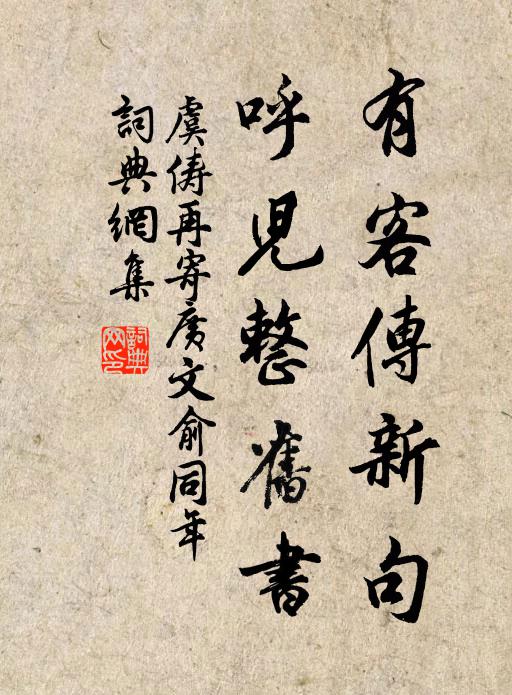 有客傳新句
呼兒整舊書
虞儔再寄廣文俞同年
詞典網集
詞典网印